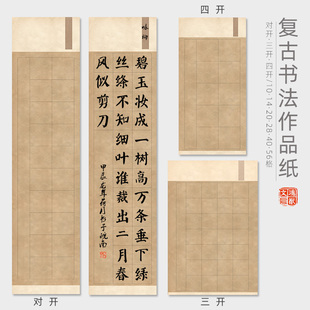 复古书法作品纸
对开·三开·四开/10·14·20·28·40·56格
四开
咏柳
碧玉妆成一树高万条垂下绿
丝绦不知细叶谁裁出二月春
风似剪刀
对开
三开